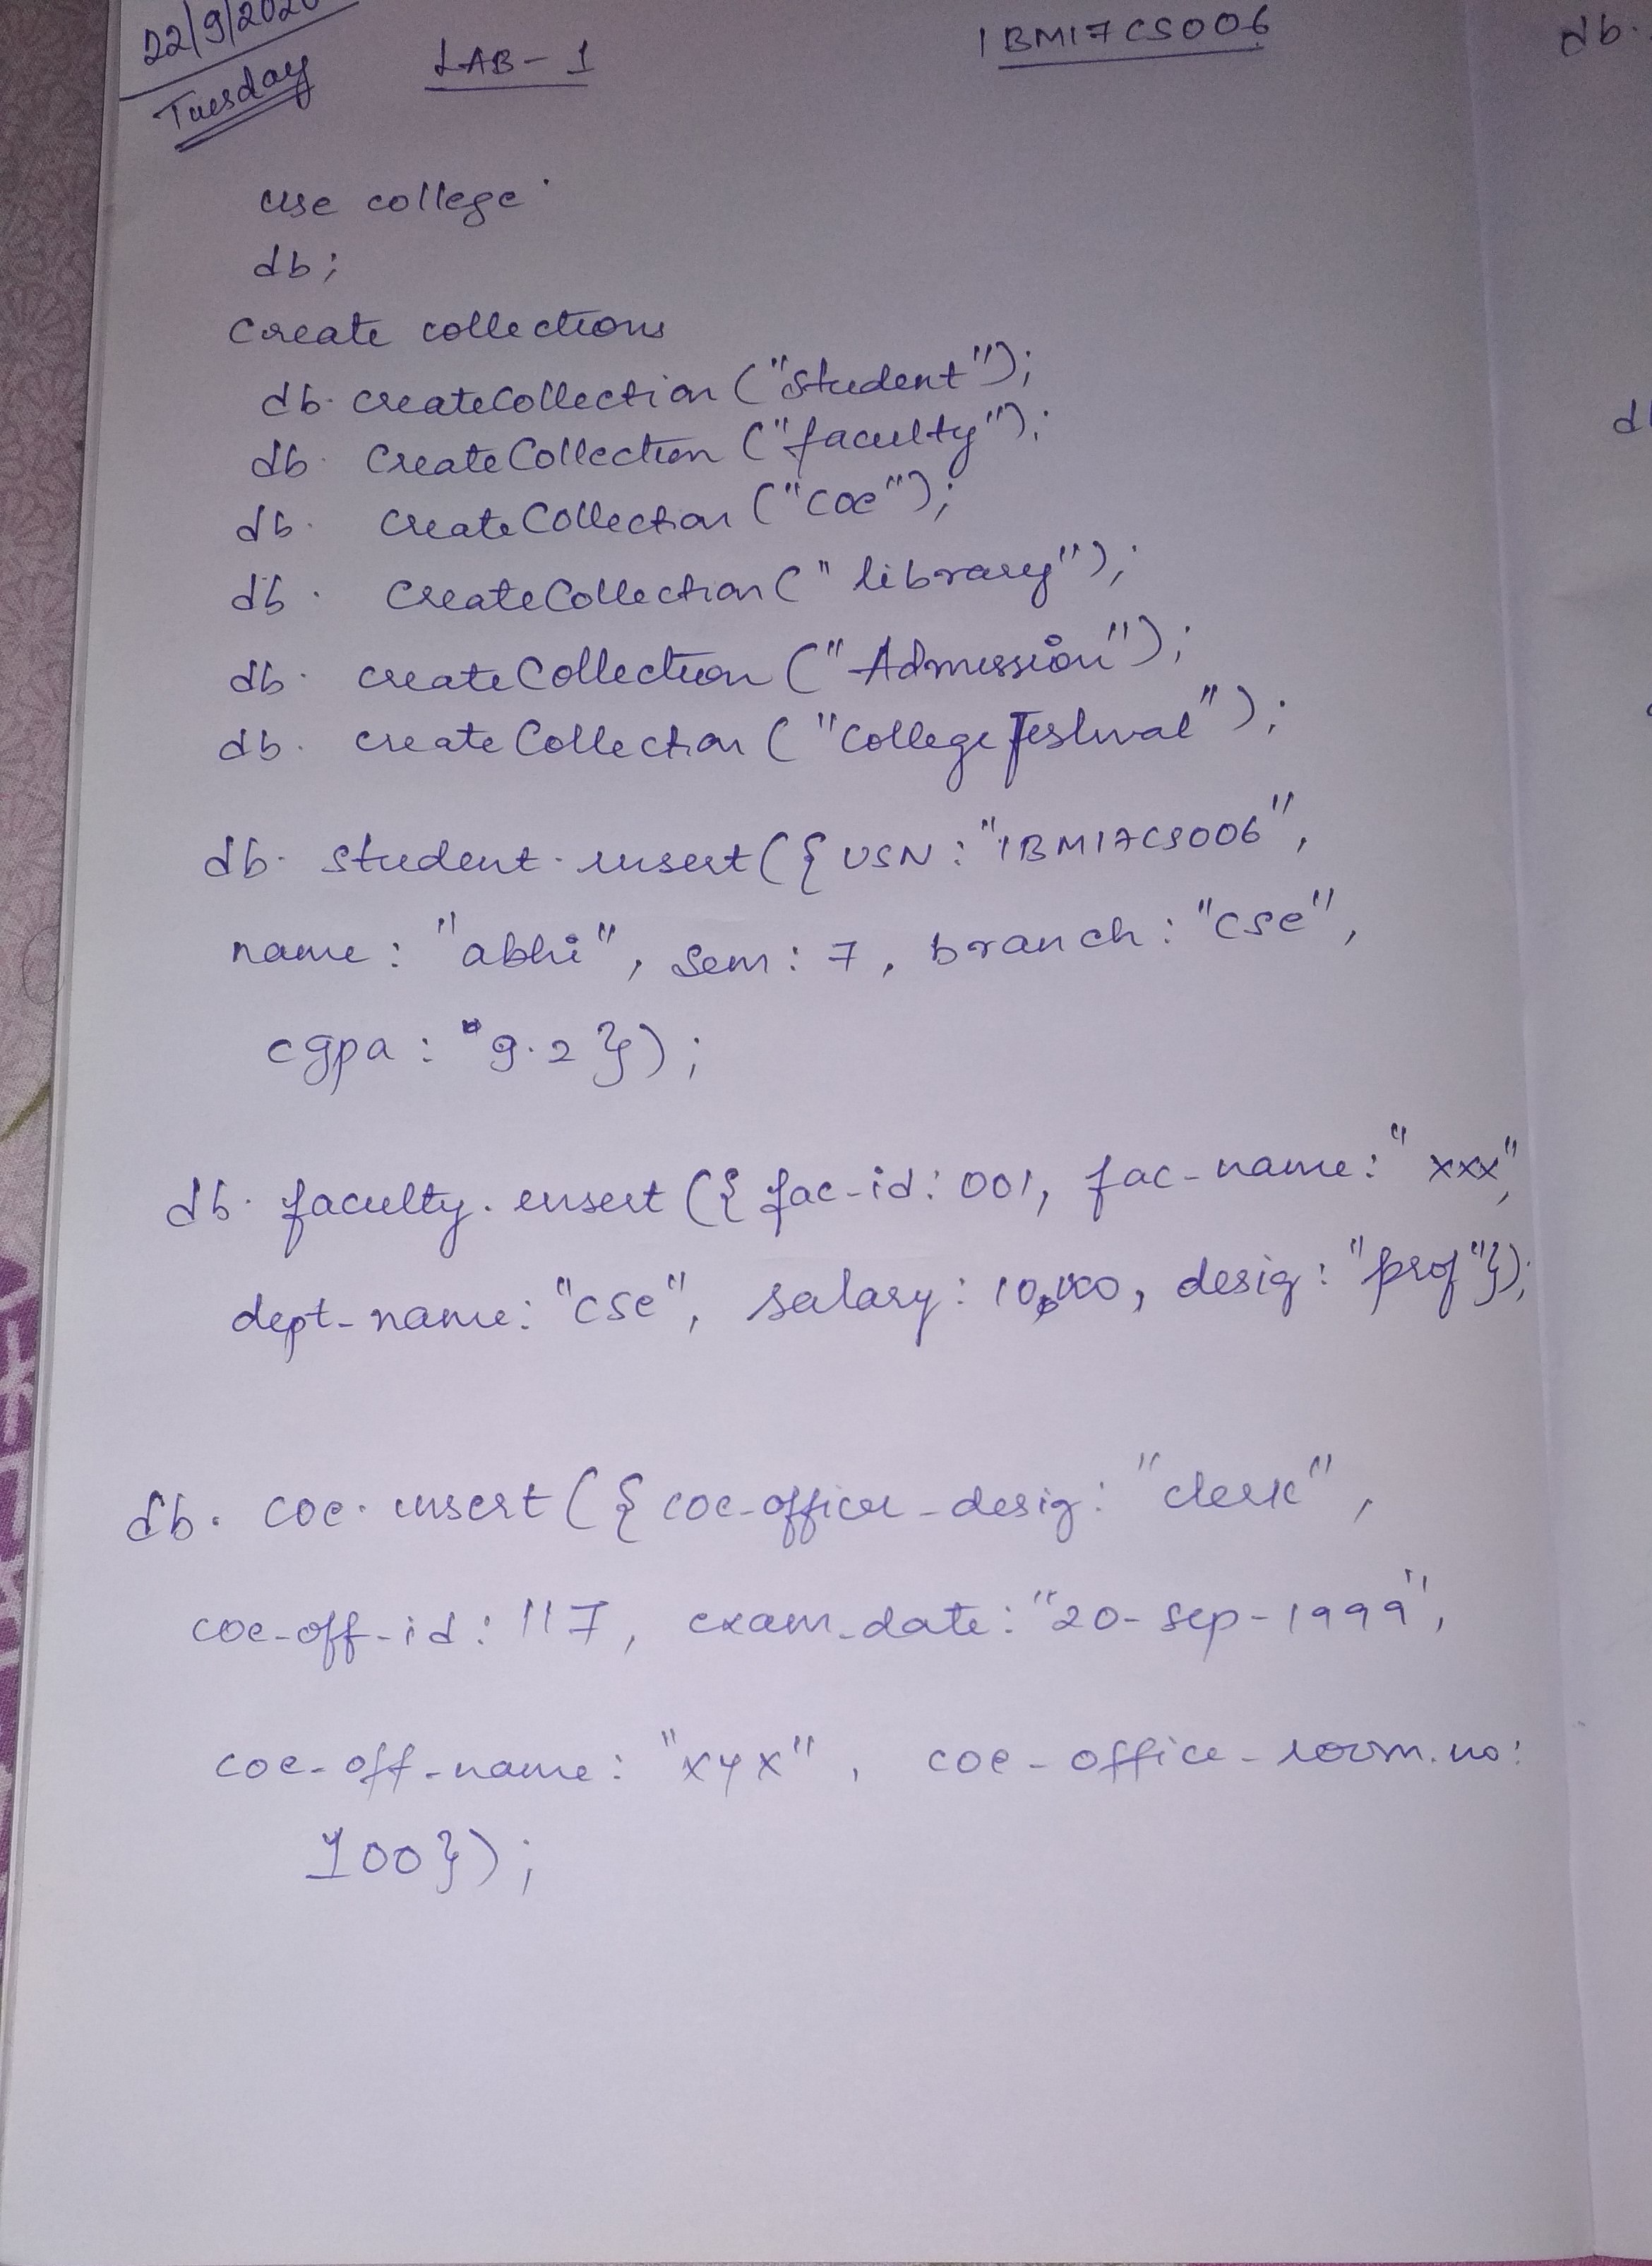 22/9/2020
Tuesday
LAB-1
1BM17CS006
use college
db;
Create collections
db.createCollection("student");
db.createCollection("faculty");
db.createCollection("coe");
db.createCollection("library");
db.createCollection("Admission");
db.createCollection("CollegeFestival");
db.student.insert({USN:"1BM17CS006",
name:"abhi", sem:7, branch:"cse",
cgpa: 9.2});
db.faculty.insert({fac-id:001, fac-name:"xxx",
dept-name:"cse", salary:10,000, desig:"prof"});
db.coe.insert({coe-officer-desig:"clerk",
coe-off-id:117, exam_date:"20-sep-1999",
coe-off-name:"xyx", coe-office-room.no:
100});
db.